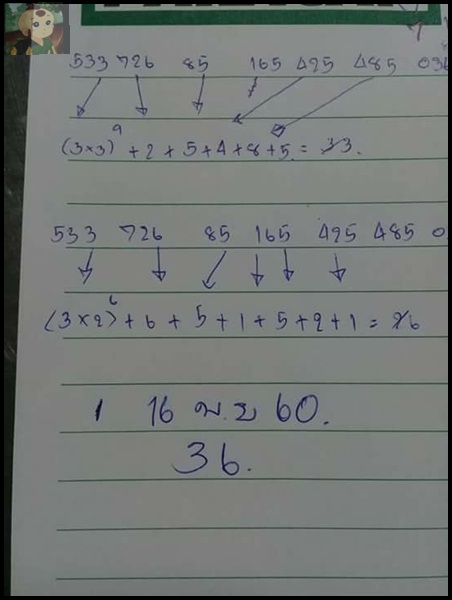 533 726 85 165 425 485 036
(3×3)⁹ + 2 + 5 + 4 + 8 + 5. = 33.
533 726 85 165 425 485 0
(3×2)⁶ + 6 + 5 + 1 + 5 + 2 + 1 = 26
1 16 พ.ย 60.
36.